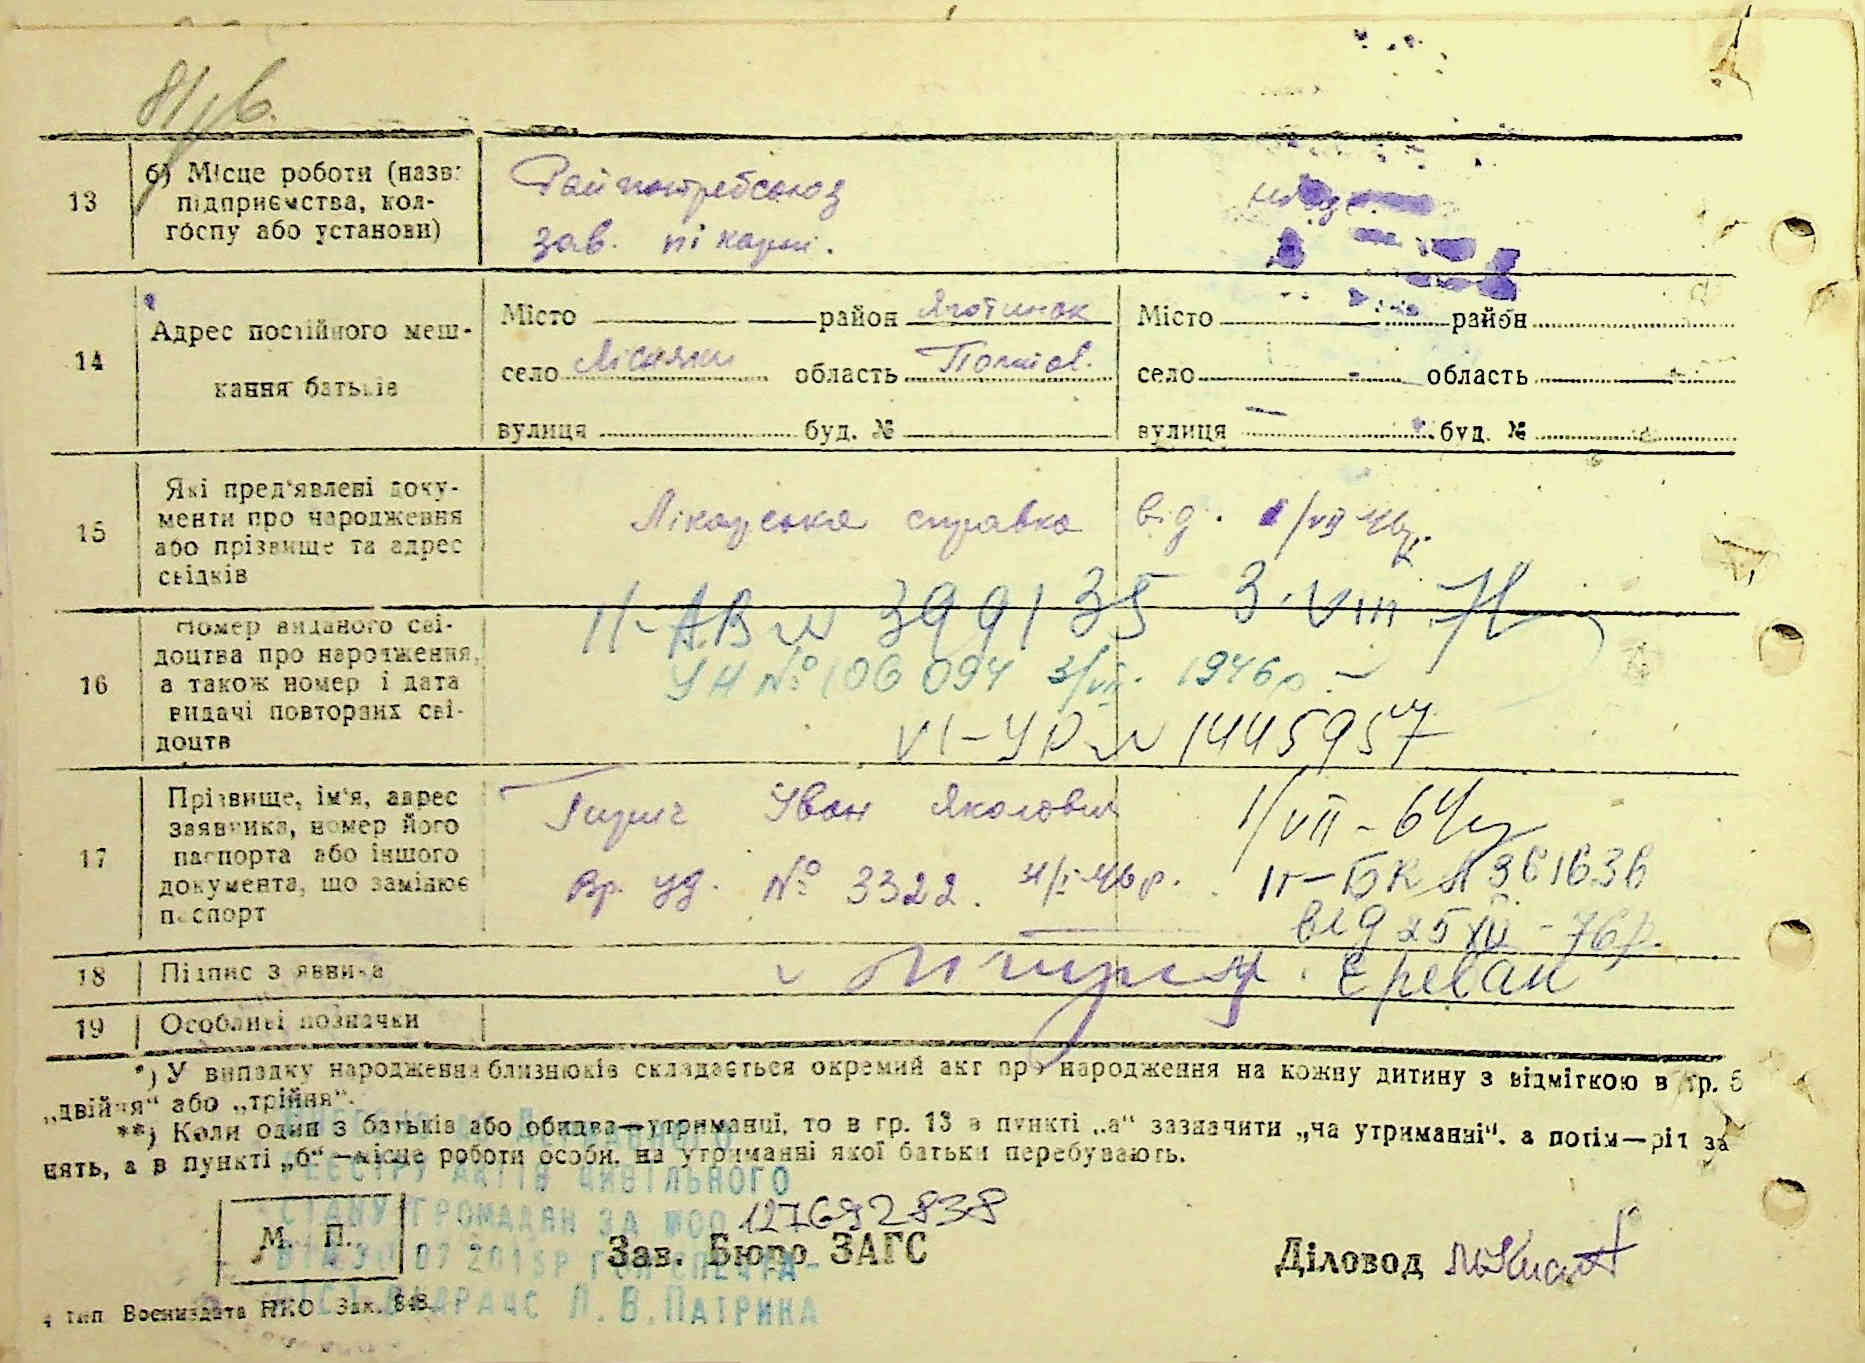 13 б) Місце роботи (назва підприємства, колгоспу або установи)
Райпотребсоюз
зав. пікарні.
14 Адрес постійного мешкання батьків
Місто район Яготинск
село Лісняки область Полтов.
вулиця буд. №
Місто район
село область
вулиця буд. №
15 Які пред'явлені документи про народження або прізвище та адрес свідків
Лікарська справка від
16 Номер виданого свідоцтва про народження, а також номер і дата видачі повторних свідоцтв
II-АВ № 399135 3.VIII
УН № 106094 1946р.
VI-УР № 1445957
17 Прізвище, ім'я, адрес заявника, номер його паспорта або іншого документа, що замінює паспорт
Іван Яколович
Вр. уд. № 3322.
1/VII-64р
II-БК № 361636
від 25 XII-76р.
18 Підпис заявника
Ереван
19 Особливі позначки
*) У випадку народження близнюків складається окремий акт про народження на кожну дитину з відміткою в гр. 5
„двійня“ або „трійня“.
**) Коли один з батьків або обидва—утриманці, то в гр. 13 в пункті „а“ зазначити „на утриманні“, а потім—рід за
нять, а в пункті „б“—місце роботи особи, на утриманні якої батьки перебувають.
РЕЄСТРУ АКТІВ ЦИВІЛЬНОГО
СТАНУ ГРОМАДЯН ЗА №00 127692838
М. П.
Зав. Бюро ЗАГС
Діловод
Л.В.ПАТРИКА
4 тип Воениздата НКО Зак. 848.